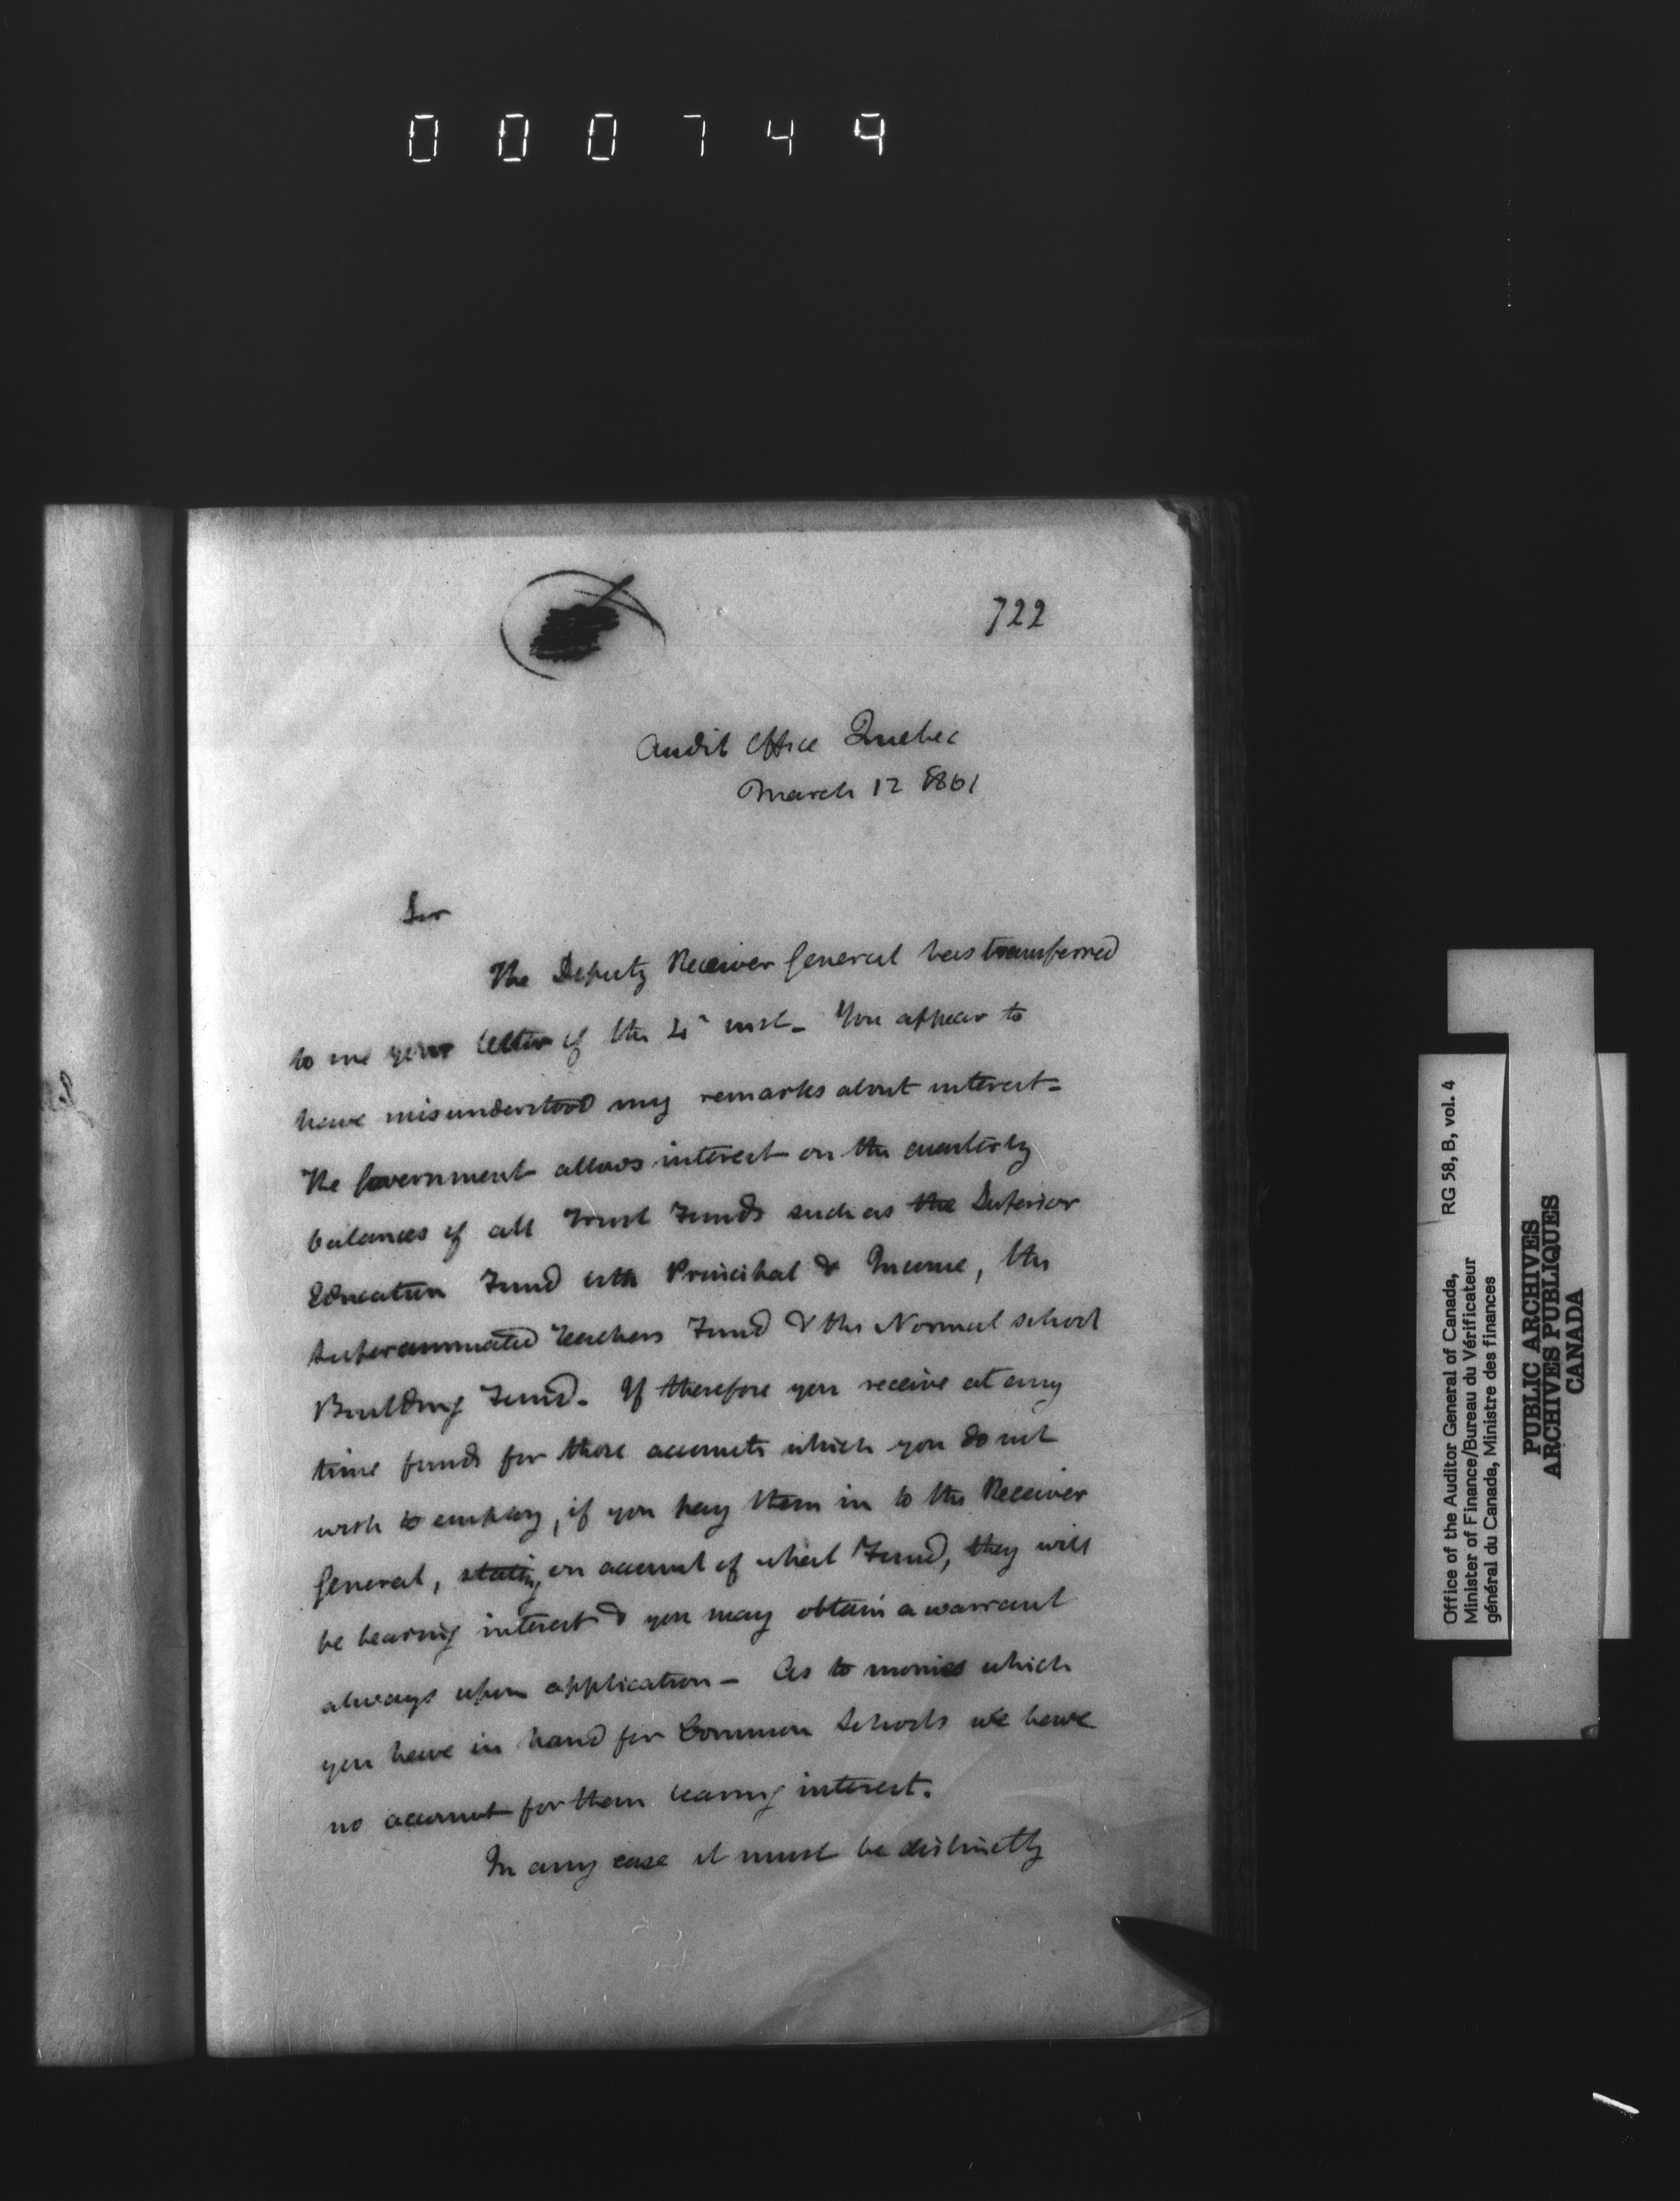 000749
722
Audit Office Quebec
March 12 1861
Sir
The Deputy Receiver General has transferred
to me your letter of the 4th inst- You appear to
have misunderstood my remarks about interest-
The Government allows interest on the quarterly
balances of all Trust Funds such as the Superior
Education Fund both Principal & Income, the
Superannuated Teachers Fund & the Normal School
Building Fund. If therefore you receive at any
time funds for those accounts which you do not
wish to employ, if you pay them in to the Receiver
General, stating on account of what Fund, they will
be bearing interest & you may obtain a warrant
always upon application - As to monies which
you have in hand for Common Schools we have
no account for them bearing interest.
In any case it must be distinctly
Office of the Auditor General of Canada, RG 58, B, vol. 4
Minister of Finance/Bureau du Vérificateur
général du Canada, Ministre des finances
PUBLIC ARCHIVES
ARCHIVES PUBLIQUES
CANADA